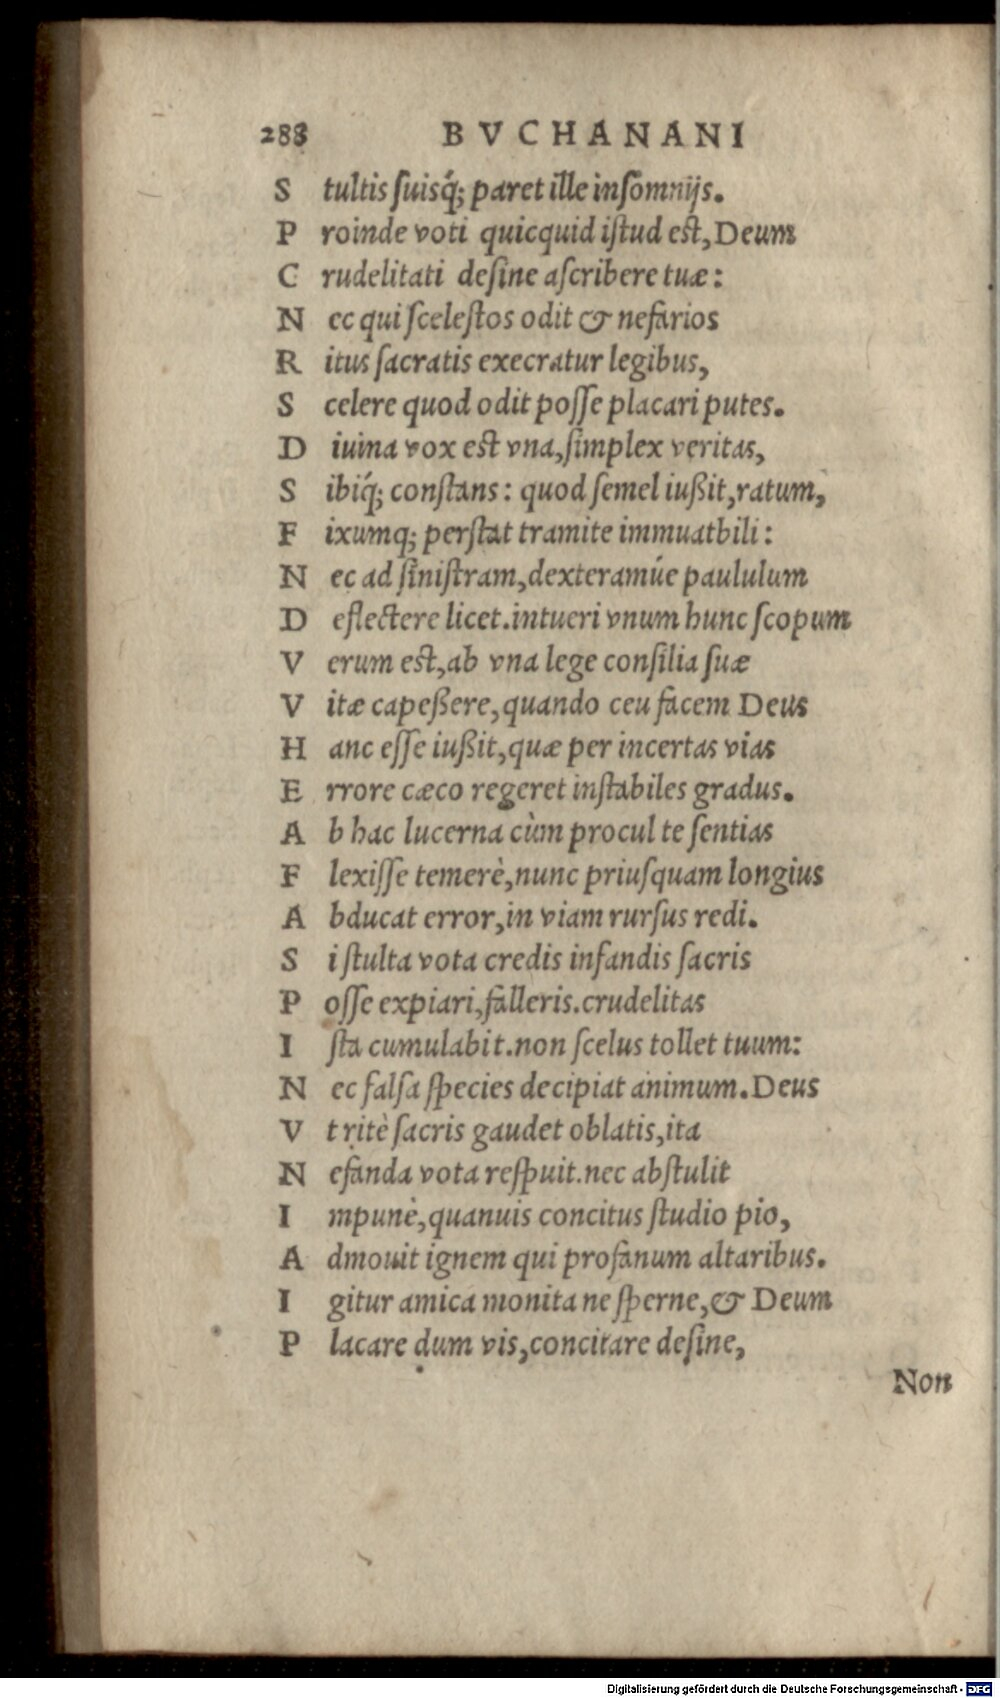 288 BVCHANANI
S tultis ſuisq́; paret ille inſomnijs.
P roinde voti quicquid iſtud est, Deum
C rudelitati deſine aſcribere tuæ:
N ec qui ſceleſtos odit & nefarios
R itus ſacratis execratur legibus,
S celere quod odit poſſe placari putes.
D iuina vox est vna, ſimplex veritas,
S ibiq́; conſtans: quod ſemel iußit, ratum,
F ixumq; perſtat tramite immuatbili:
N ec ad ſiniſtram, dexteramúe paululum
D eflectere licet. intueri vnum hunc ſcopum
V erum est, ab vna lege conſilia ſuæ
V itæ capeßere, quando ceu facem Deus
H anc eſſe iußit, quæ per incertas vias
E rrore cæco regeret inſtabiles gradus.
A b hac lucerna cùm procul te ſentias
F lexiſſe temerè, nunc priuſquam longius
A bducat error, in viam rurſus redi.
S i ſtulta vota credis infandis ſacris
P oſſe expiari, falleris. crudelitas
I ſta cumulabit. non ſcelus tollet tuum:
N ec falſa ſpecies decipiat animum. Deus
V t ritè ſacris gaudet oblatis, ita
N efanda vota reſpuit. nec abſtulit
I mpunè, quanuis concitus ſtudio pio,
A dmouit ignem qui profanum altaribus.
I gitur amica monita ne ſperne, & Deum
P lacare dum vis, concitare deſine,
Non
Digitalisierung gefördert durch die Deutsche Forschungsgemeinschaft - DFG